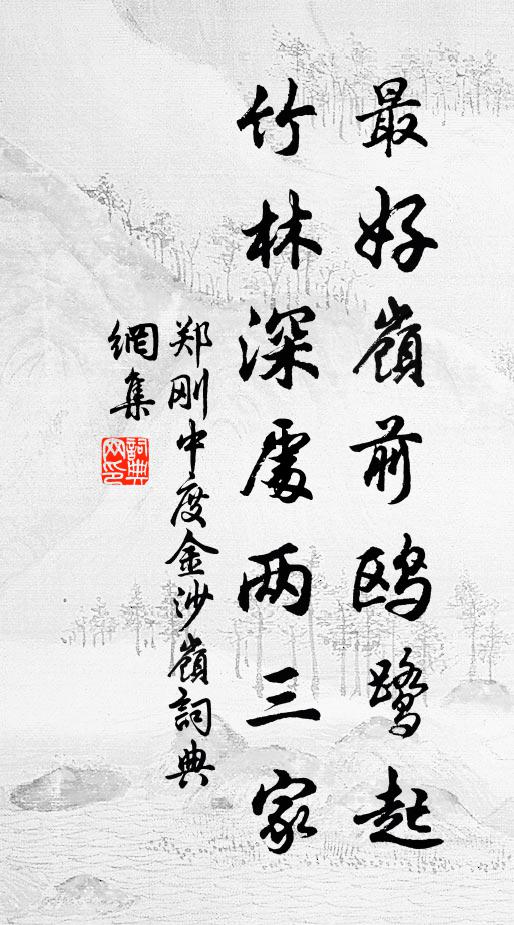 最好嶺前鸥鹭起
竹林深處两三家
郑刚中度金沙嶺詞典
網集
詞典网印